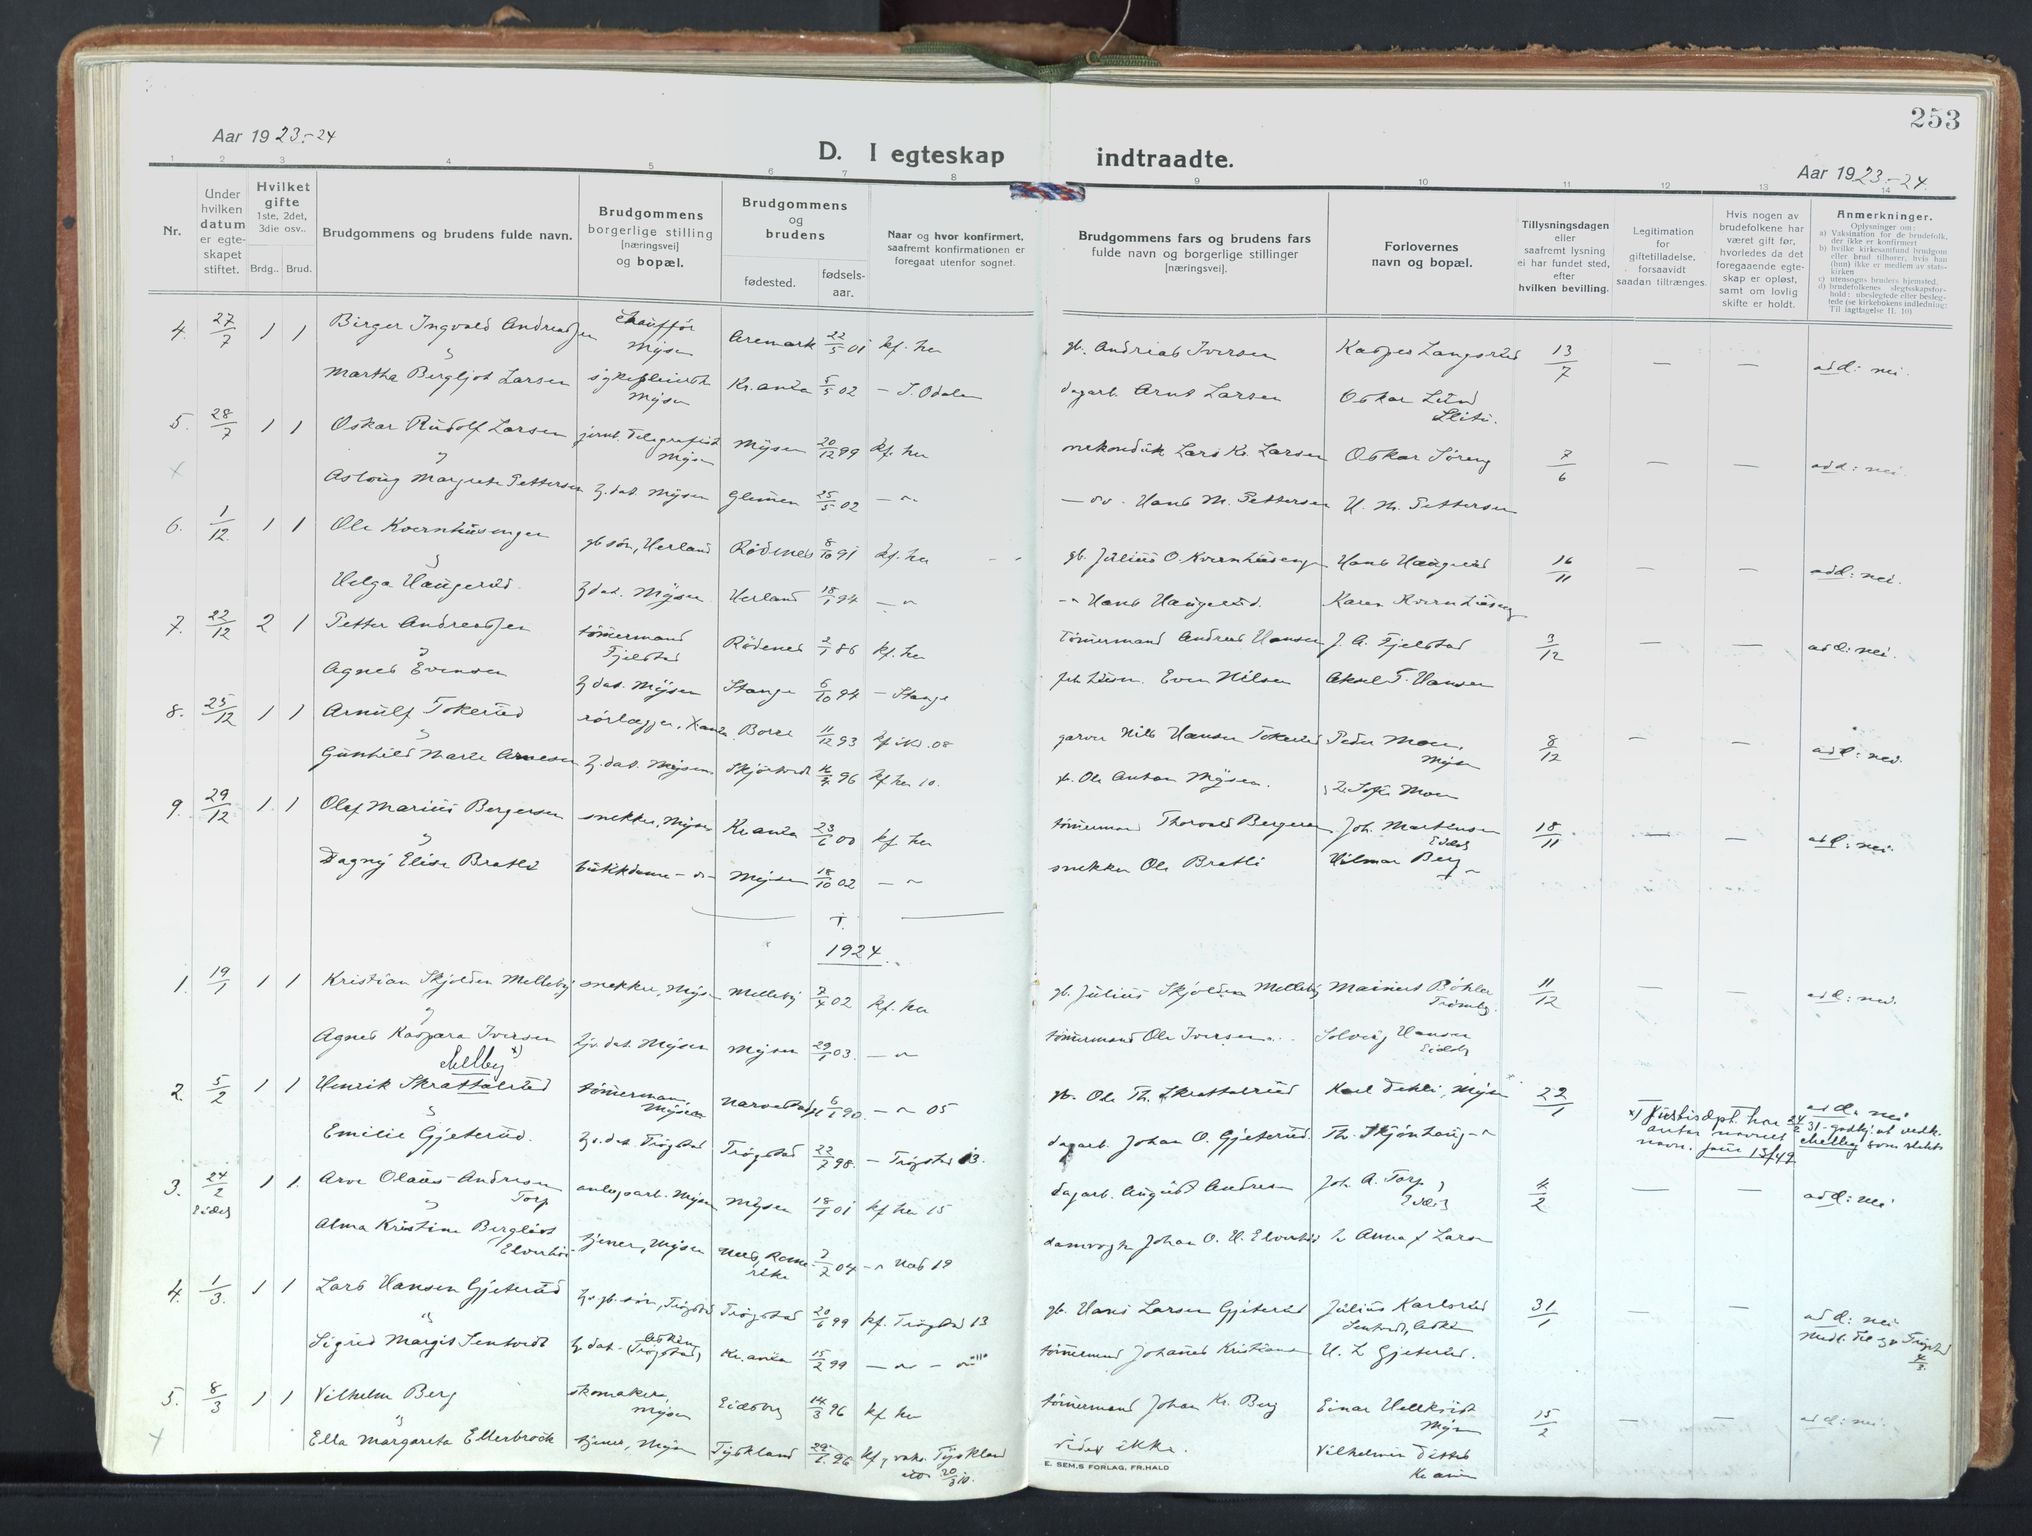 253
Aar 1923.-24
D. I egteskap indtraadte.
Aar 1923.-24.
1 2 3 4 5 6 7 8 9 10 11 12 13 14
Nr.
Under hvilken datum er egteskapet stiftet.
Hvilket gifte 1ste, 2det, 3die osv..
Brdg.. Brud.
Brudgommens og brudens fulde navn.
Brudgommens borgerlige stilling [næringsvei] og bopæl.
Brudgommens og brudens
fødested. fødselsaar.
Naar og hvor konfirmert, saafremt konfirmationen er foregaat utenfor sognet.
Brudgommens fars og brudens fars fulde navn og borgerlige stillinger [næringsvei].
Forlovernes navn og bopæl.
Tillysningsdagen eller saafremt lysning ei har fundet sted, efter hvilken bevilling.
Legitimation for giftetilladelse, forsaavidt saadan tiltrænges.
Hvis nogen av brudefolkene har været gift før, hvorledes da det foregaaende egteskap er opløst, samt om lovlig skifte er holdt.
Anmerkninger.
Oplysninger om:
a) Vaksination for de brudefolk, der ikke er konfirmert
b) hvilke kirkesamfund brudgom eller brud tilhører, hvis han (hun) ikke er medlem av statskirken
c) utensogns bruders hjemsted.
d) brudefolkenes slegtsskapsforhold: ubeslegtede eller beslegtede (se kirkebokens indledning: Til iagttagelse II. 10)
4. 27/7 1 1 Birger Ingvald Andreassen chauffør Mysen Aremark 22/5 01 kf. her gb. Andreas Iversen Kasper Langsrud 13/7 — — ad d: nei.
Martha Bergljot Larsen sykepleierske Mysen Kr.ania 5/5 02 — S. Odalen dagarb. Arnt Larsen Oskar Lund Slitu.
5. 28/7 1 1 Oskar Rudolf Larsen jernb. telegrafist Mysen Mysen 20/12 99 kf. her Lars Kr. Larsen Oskar Søreng 7/6 — — ad d: nei.
Aslaug Margrete Pettersen h. dat. Mysen Glemmen 25/5 02 — " — do. Hans M. Pettersen H. M. Pettersen
6. 1/12 1 1 Ole Kvernhusengen gb søn, Herland Rødenes 8/10 91 kf. her gb. Julius O. Kvernhusengen Hans Haugerud 16/11 — — ad d: nei.
Helga Haugerud. h dat. Mysen Herland 18/1 94 — " — " Hans Haugerud. Karen Kvernhuseng
7. 22/12 2 1 Petter Andreassen tømmermand Fjelstad Rødenes 2/1 86 kf. her tømmermand Andreas Hansen J. A. Fjelstad 3/12 — — ad d: nei.
Agnes Evensen h dat. Mysen Stange 6/10 94 — Stange Even Nilsen Aksel T. Hansen
8. 25/12 1 1 Arnulf Tokerud rørlægger, Kr.ania Borre 11/12 93 kf i Kr. 08 garver Nils Hansen Tokerud Peder Moen, Mysen 8/12 — — ad d: nei.
Gunhild Marie Arnesen h. dat. Mysen. Skjeberg 96 kf her 10. Ole Anton Mysen. Sofie Moen
9. 29/12 1 1 Olaf Marius Bergersen snekker, Mysen Kr.ania 23/6 00 kf her tømmermand Thorvald Bergersen Joh. Martinsen Eidsb 18/11 — — ad d: nei.
Dagny Elise Bratli butikkdame — do — Mysen 18/10 02 — " snekker Ole Bratli Hilmar Berg "
1924.
1. 19/1 1 1 Kristian Skjolden Melleby snekker, Mysen Melleby 7/4 02 kf. her gb. Julius Skjolden Melleby Mainert Bøhler Trømborg. 11/12 — — ad d: nei.
Agnes Kaspara Iversen hjv. dat. Mysen Mysen 29/1 03. — " tømmermand Ole Iversen Solveig Hansen Eidsb
Melleby x)
2. 5/2 1 1 Henrik Skrattalsrud tømmermann, Mysen 6/1 90. — " 05 gb. Ole Th. Skrattalsrud Karl Dehli, Mysen 22/1 ad d: nei
Emilie Gjeterud. h. dat. Trøgstad Trøgstad 22/7 98. — Trøgstad 13. dagarb. Johan O. Gjeterud. Th. Skjønhaug "
x) Justisdept. har 24/2 31 godkj. at vedk. antar navnet Melleby som slektsnavn. Jnr 13/49
3. 24/2 Eidsb 1 1. Arve Olaus Andresen Torp anlegsarb. Mysen Mysen 18/1 01 kf her 15 dagarb. August Andresen Joh. A. Torp, Eidsb 4/2 — — ad d: nei
Alma Kristine Bergliot Elverhøi tjener, Mysen Nes, Romerike 7/7 04 — " Nes 19 damvogter Johan O. H. Elverhøi Anna Larsen
4. 1/3. 1 1 Lars Hansen Gjeterud h. gb. søn, Trøgstad Trøgstad 20/6 99 kf. Trøgstad 13 gb. Hans Larsen Gjeterud Julius Karlsrud Sentvedt, Askim 31/1 — — ad d: nei
Sigrid Margit Sentvedt h. dat. Askim (Trøgstad) Kr.ania 15/2 99 — " — " tømmermand Johannes Kristiansen H. L. Gjeterud. Medl. til sp Trøgstad 4/3.
5. 8/3 1 1 Vilhelm Berg skomaker, Mysen Eidsberg 14/3 96 kf her tømmermand Johan Kr. Berg Einar Mysen 15/2 — — ad d: nei.
Ella Margareta Ellerbrock tjener, Mysen Tyskland 29/1 96 kf, vaks. Tyskland 20/3 10. vides ikke. Vilhelmine Kr.ania
E. SEM,S FORLAG, FR.HALD